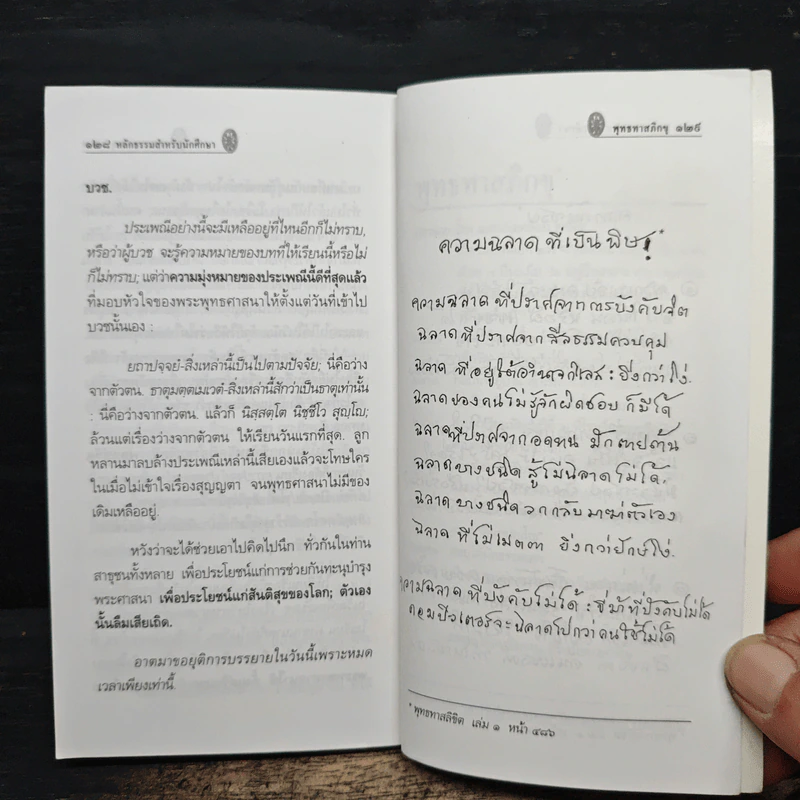 ๑๒๘ หลักธรรมสำหรับนักศึกษา
บวช.
ประเพณีอย่างนี้จะมีเหลืออยู่ที่ไหนอีกก็ไม่ทราบ,
หรือว่าผู้บวช จะรู้ความหมายของบทที่ให้เรียนนี้หรือไม่
ก็ไม่ทราบ; แต่ว่าความมุ่งหมายของประเพณีนี้ดีที่สุดแล้ว
ที่มอบหัวใจของพระพุทธศาสนาให้ตั้งแต่วันที่เข้าไป
บวชนั้นเอง :
ยถาปจฺจยํ-สิ่งเหล่านี้เป็นไปตามปัจจัย; นี่คือว่าง
จากตัวตน. ธาตุมตฺตเมเวตํ-สิ่งเหล่านี้สักว่าเป็นธาตุเท่านั้น
: นี่คือว่างจากตัวตน. แล้วก็ นิสฺสตฺโต นิชฺชีโว สุญฺโญ;
ล้วนแต่เรื่องว่างจากตัวตน ให้เรียนวันแรกที่สุด. ลูก
หลานมาลบล้างประเพณีเหล่านี้เสียเองแล้วจะโทษใคร
ในเมื่อไม่เข้าใจเรื่องสุญญตา จนพุทธศาสนาไม่มีของ
เดิมเหลืออยู่.
หวังว่าจะได้ช่วยเอาไปคิดไปนึก ทั่วกันในท่าน
สาธุชนทั้งหลาย เพื่อประโยชน์แก่การช่วยกันทะนุบำรุง
พระศาสนา เพื่อประโยชน์แก่สันติสุขของโลก; ตัวเอง
นั้นลืมเสียเถิด.
อาตมาขอยุติการบรรยายในวันนี้เพราะหมด
เวลาเพียงเท่านี้.
พุทธทาสภิกขุ ๑๒๙
ความฉลาด ที่เป็นพิษ!*
ความฉลาด ที่ปราศจากการบังคับจิต
ฉลาด ที่ปราศจาก ศีลธรรมควบคุม
ฉลาด ที่อยู่ใต้อำนาจกิเลส : ยิ่งกว่าโง่.
ฉลาด ของคนไม่รู้จักผิดชอบ ก็มีได้
ฉลาด ที่ปราศจากอดทน มักตายด้าน
ฉลาด บางชนิด สู้ไม่ฉลาด ไม่ได้.
ฉลาด บางชนิด วกกลับมาฆ่าตัวเอง
ฉลาด ที่ไม่เมตตา ยิ่งกว่ายักษ์โง่.
ความฉลาด ที่บังคับไม่ได้ : ขี่ม้าที่บังคับไม่ได้
คอมปิวเตอร์จะฉลาดไปกว่าคนใช้ไม่ได้
* พุทธทาสลิขิต เล่ม ๑ หน้า ๔๘๖